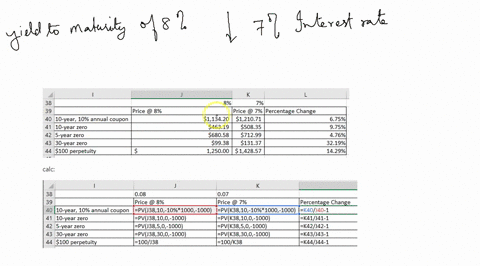 yield to maturity of 8% ↓ 7% Interest rate
I J K L
38 8% 7%
39 Price @ 8% Price @ 7% Percentage Change
40 10-year, 10% annual coupon $1,134.20 $1,210.71 6.75%
41 10-year zero $463.19 $508.35 9.75%
42 5-year zero $680.58 $712.99 4.76%
43 30-year zero $99.38 $131.37 32.19%
44 $100 perpetuity $ 1,250.00 $1,428.57 14.29%
calc:
I J K L
38 0.08 0.07
39 Price @ 8% Price @ 7% Percentage Change
40 10-year, 10% annual coupon =PV(J38,10,-10%*1000,-1000) =PV(K38,10,-10%*1000,-1000) =K40/J40-1
41 10-year zero =PV(J38,10,0,-1000) =PV(K38,10,0,-1000) =K41/J41-1
42 5-year zero =PV(J38,5,0,-1000) =PV(K38,5,0,-1000) =K42/J42-1
43 30-year zero =PV(J38,30,0,-1000) =PV(K38,30,0,-1000) =K43/J43-1
44 $100 perpetuity =100/J38 =100/K38 =K44/J44-1